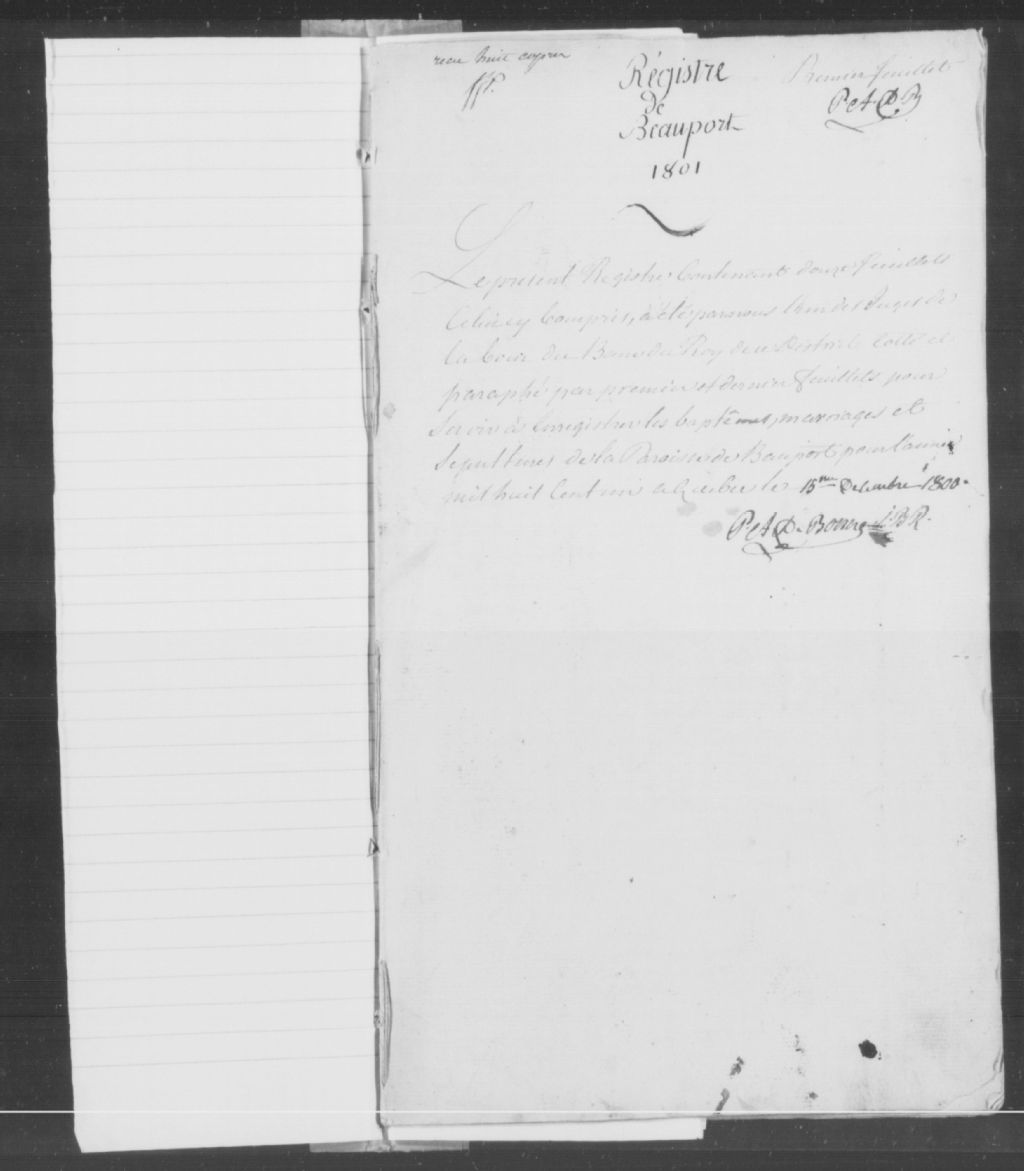 Régistre
de
Beauport
1801
Premier feuillet
P. A. D. B
Le present Registre Contenant douze feuillets
Celui cy Compris, à été par nous l'un des Juges de
la Cour du Banc du Roy de ce District Cotté et
paraphé par premier et dernier feuillets pour
Servir à Enregistrer les baptêmes, marriages et
Sepultures de la Paroisse de Bauport pour l'année
mil huit Cent un a Quebec le 15me Decembre 1800.
P. A. D. Bonne J.B.R.